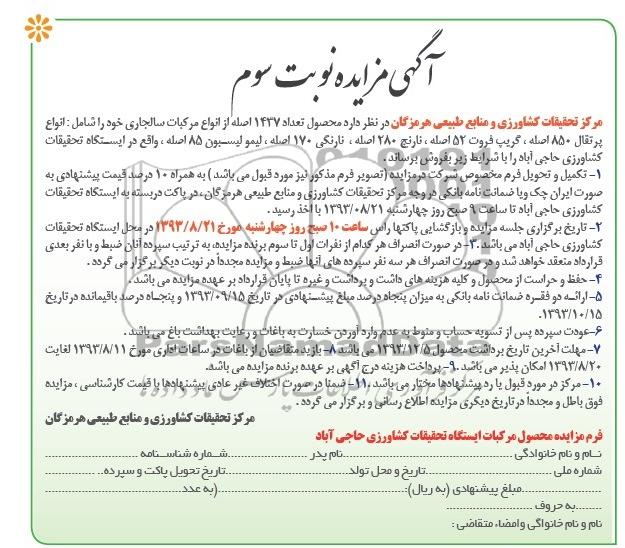 آگهی مزایده نوبت سوم
مرکز تحقیقات کشاورزی و منابع طبیعی هرمزگان در نظر دارد محصول تعداد ۱۴۳۷ اصله از انواع مرکبات سالجاری خود را شامل : انواع
پرتقال ۸۵۰ اصله ، گریپ فروت ۵۲ اصله ، نارنج ۲۸۰ اصله ، نارنگی ۱۷۰ اصله ، لیمو لیسبون ۸۵ اصله ، واقع در ایستگاه تحقیقات
کشاورزی حاجی آباد را با شرایط زیر بفروش برساند .
۱- تکمیل و تحویل فرم مخصوص شرکت در مزایده (تصویر فرم مذکور نیز مورد قبول می باشد ) به همراه ۱۰ درصد قیمت پیشنهادی به
صورت ایران چک ویا ضمانت نامه بانکی در وجه مرکز تحقیقات کشاورزی و منابع طبیعی هرمزگان ، در پاکت دربسته به ایستگاه تحقیقات
کشاورزی حاجی آباد تا ساعت ۹ صبح روز چهارشنبه ۱۳۹۳/۰۸/۲۱ با اخذ رسید.
۲- تاریخ برگزاری جلسه مزایده و بازگشایی پاکتها راس ساعت ۱۰ صبح روز چهارشنبه مورخ ۱۳۹۳/۸/۲۱ در محل ایستگاه تحقیقات
کشاورزی حاجی آباد می باشد .۳- در صورت انصراف هر کدام از نفرات اول تا سوم برنده مزایده، به ترتیب سپرده آنان ضبط و با نفر بعدی
قرارداد منعقد خواهد شد و در صورت انصراف هر سه نفر سپرده های آنها ضبط و مزایده مجدداً در نوبت دیگر برگزار می گردد .
۴- حفظ و حراست از محصول و کلیه هزینه های داشت و برداشت و غیره تا پایان قرارداد بر عهده مزایده می باشد .
۵- ارائه دو فقره ضمانت نامه بانکی به میزان پنجاه درصد مبلغ پیشنهادی در تاریخ ۱۳۹۳/۰۹/۱۵ و پنجاه درصد باقیمانده در تاریخ
۱۳۹۳/۱۰/۱۵.
۶-عودت سپرده پس از تسویه حساب و منوط به عدم وارد آوردن خسارت به باغات و رعایت بهداشت باغ می باشد .
۷- مهلت آخرین تاریخ برداشت محصول ۱۳۹۳/۱۲/۵ می باشد .۸- بازدید متقاضیان از باغات در ساعات اداری مورخ ۱۳۹۳/۸/۱۱ لغایت
۱۳۹۳/۸/۲۰ امکان پذیر می باشد .۹- پرداخت هزینه درج آگهی بر عهده برنده مزایده می باشد.
۱۰- مرکز در مورد قبول یا رد پیشنهادها مختار می باشد .۱۱- ضمنا در صورت اختلاف غیر عادی پیشنهادها با قیمت کارشناسی ، مزایده
فوق باطل و مجدداً در تاریخ دیگری مزایده اطلاع رسانی و برگزار می گردد .
مرکز تحقیقات کشاورزی و منابع طبیعی هرمزگان
فرم مزایده محصول مرکبات ایستگاه تحقیقات کشاورزی حاجی آباد
نام و نام خانوادگی ............................نام پدر ....................شماره شناسنامه ............................
شماره ملی ................................تاریخ و محل تولد............................تاریخ تحویل پاکت و سپرده.......................
....................مبلغ پیشنهادی (به ریال):................................................(به عدد ............................
........به حروف ............................
نام و نام خانوادگی وامضاء متقاضی :
ParsNamadData